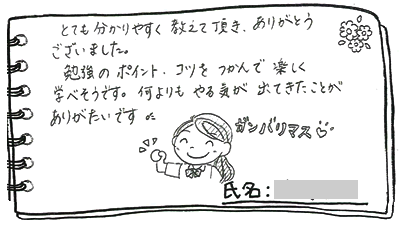 とても分かりやすく教えて頂き、ありがとう
ございました。
勉強のポイント・コツをつかんで楽しく
学べそうです。何よりもやる気が出てきたことが
ありがたいです。
ガンバリマス
氏名: